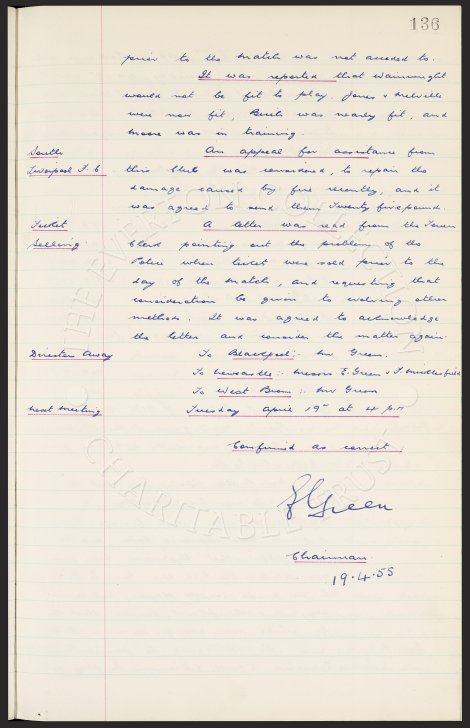 136
prior to the match was not acceded to.
It was reported that Wainwright
would not be fit to play. Jones & Melville
were now fit, Birch was nearly fit, and
Moore was in training.
South An appeal for assistance from
Liverpool F.C this Club was considered, to repair the
damage caused by fire recently, and it
was agreed to send them Twenty five pounds.
Ticket A letter was read from the Town
Selling Clerk pointing out the problem of the
Police when ticket were sold prior to the
day of the match, and requesting that
consideration be given to evolving other
methods. It was agreed to acknowledge
the letter and consider the matter again.
Director Away To Blackpool:- Mr Green.
To Newcastle:- Messrs E. Green & F. Micklesfield
To West Brom:- Mr Green
Next Meeting Tuesday April 19th at 4 p.m
Confirmed as correct
Green
Chairman.
19.4.55
THE EVERTON
CHARITABLE TRUST